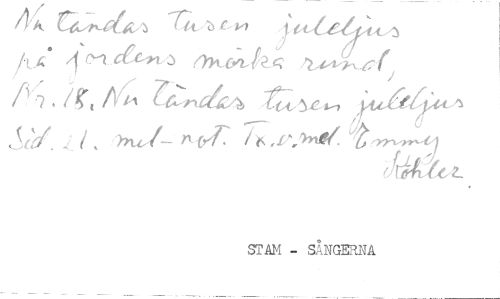 Nu tändas tusen juleljus
på jordens mörka rund,
Nr. 18. Nu tändas tusen juleljus
Sid. 21. mel-not. Tx.o.mel. Emmy
Köhler.
STAM - SÅNGERNA